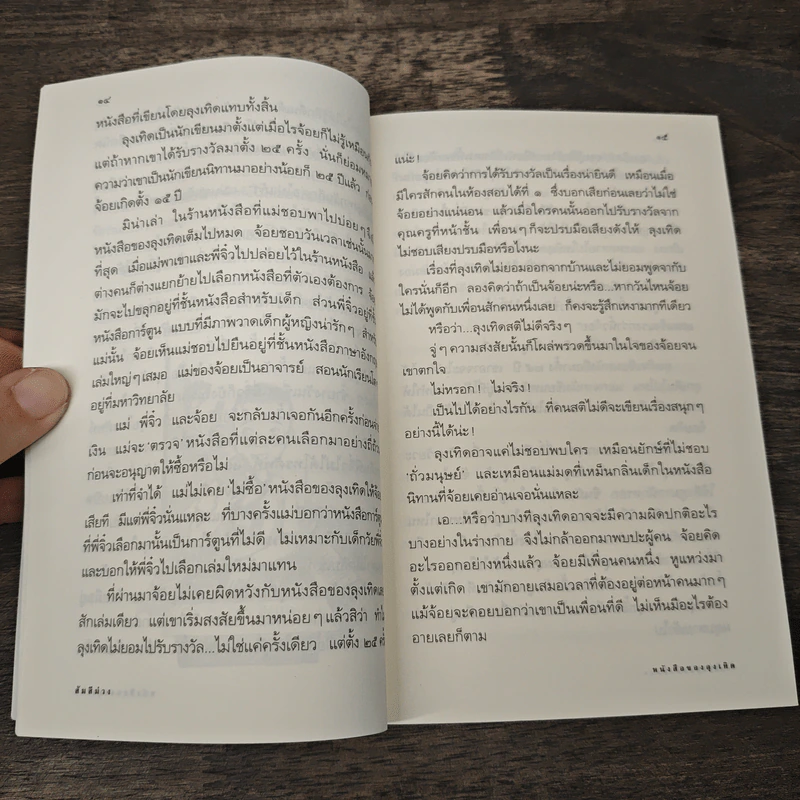 ๑๔
หนังสือที่เขียนโดยลุงเทิดแทบทั้งสิ้น
ลุงเทิดเป็นนักเขียนมาตั้งแต่เมื่อไรจ้อยก็ไม่รู้เหมือนกัน
แต่ถ้าหากเขาได้รับรางวัลมาตั้ง ๒๕ ครั้ง นั่นก็ย่อมหมา
ความว่าเขาเป็นนักเขียนนิทานมาอย่างน้อยก็ ๒๕ ปีแล้ว
จ้อยเกิดตั้ง ๑๕ ปี
มิน่าเล่า ในร้านหนังสือที่แม่ชอบพาไปบ่อยๆ จึง
หนังสือของลุงเทิดเต็มไปหมด จ้อยชอบวันเวลาเช่นนั้น
ที่สุด เมื่อแม่พาเขาและพี่จิ๋วไปปล่อยไว้ในร้านหนังสือ
ต่างคนก็ต่างแยกย้ายไปเลือกหนังสือที่ตัวเองต้องการ
มักจะไปขลุกอยู่ที่ชั้นหนังสือสำหรับเด็ก ส่วนพี่จิ๋วอยู่ที่
หนังสือการ์ตูน แบบที่มีภาพวาดเด็กผู้หญิงน่ารักๆ
แม่นั้น จ้อยเห็นแม่ชอบไปยืนอยู่ที่ชั้นหนังสือภาษาอังกฤ
เล่มใหญ่ๆ เสมอ แม่ของจ้อยเป็นอาจารย์ สอนนักเรียน
อยู่ที่มหาวิทยาลัย
แม่ พี่จิ๋ว และจ้อย จะกลับมาเจอกันอีกครั้งก่อน
เงิน แม่จะ ‘ตรวจ’ หนังสือที่แต่ละคนเลือกมาอย่างถี่ถ้วน
ก่อนจะอนุญาตให้ซื้อหรือไม่
เท่าที่จำได้ แม่ไม่เคย ‘ไม่ซื้อ’ หนังสือของลุงเทิดให้จ้อย
เสียที มีแต่พี่จิ๋วนั่นแหละ ที่บางครั้งแม่บอกว่าหนังสือการ์ตู
ที่พี่จิ๋วเลือกมานั้นเป็นการ์ตูนที่ไม่ดี ไม่เหมาะกับเด็กวัย
และบอกให้พี่จิ๋วไปเลือกเล่มใหม่มาแทน
ที่ผ่านมาจ้อยไม่เคยผิดหวังกับหนังสือของลุงเทิดเล
สักเล่มเดียว แต่เขาเริ่มสงสัยขึ้นมาหน่อยๆ แล้วสิว่า ทำไ
ลุงเทิดไม่ยอมไปรับรางวัล...ไม่ใช่แค่ครั้งเดียว แต่ตั้ง ๒๕ ครั้
ส้มสีม่วง
๑๕
แน่ะ!
จ้อยคิดว่าการได้รับรางวัลเป็นเรื่องน่ายินดี เหมือนเมื่อ
มีใครสักคนในห้องสอบได้ที่ ๑ ซึ่งบอกเสียก่อนเลยว่าไม่ใช่
จ้อยอย่างแน่นอน แล้วเมื่อใครคนนั้นออกไปรับรางวัลจาก
คุณครูที่หน้าชั้น เพื่อนๆ ก็จะปรบมือเสียงดังให้ ลุงเทิด
ไม่ชอบเสียงปรบมือหรือไงนะ
เรื่องที่ลุงเทิดไม่ยอมออกจากบ้านและไม่ยอมพูดจากับ
ใครนั่นก็อีก ลองคิดว่าถ้าเป็นจ้อยน่ะหรือ...หากวันไหนจ้อย
ไม่ได้พูดกับเพื่อนสักคนหนึ่งเลย ก็คงจะรู้สึกเหงามากทีเดียว
หรือว่า...ลุงเทิดสติไม่ดีจริงๆ
จู่ๆ ความสงสัยนั้นก็โผล่พรวดขึ้นมาในใจของจ้อยจน
เขาตกใจ
ไม่หรอก! ไม่จริง!
เป็นไปได้อย่างไรกัน ที่คนสติไม่ดีจะเขียนเรื่องสนุกๆ
อย่างนี้ได้น่ะ!
ลุงเทิดอาจแค่ไม่ชอบพบใคร เหมือนยักษ์ที่ไม่ชอบ
‘ถั่วมนุษย์’ และเหมือนแม่มดที่เหม็นกลิ่นเด็กในหนังสือ
นิทานที่จ้อยเคยอ่านเจอนั่นแหละ
เอ...หรือว่าบางทีลุงเทิดอาจจะมีความผิดปกติอะไร
บางอย่างในร่างกาย จึงไม่กล้าออกมาพบปะผู้คน จ้อยคิด
อะไรออกอย่างหนึ่งแล้ว จ้อยมีเพื่อนคนหนึ่ง หูแหว่งมา
ตั้งแต่เกิด เขามักอายเสมอเวลาที่ต้องอยู่ต่อหน้าคนมากๆ
แม้จ้อยจะคอยบอกว่าเขาเป็นเพื่อนที่ดี ไม่เห็นมีอะไรต้อง
อายเลยก็ตาม
หนังสือของลุงเทิด